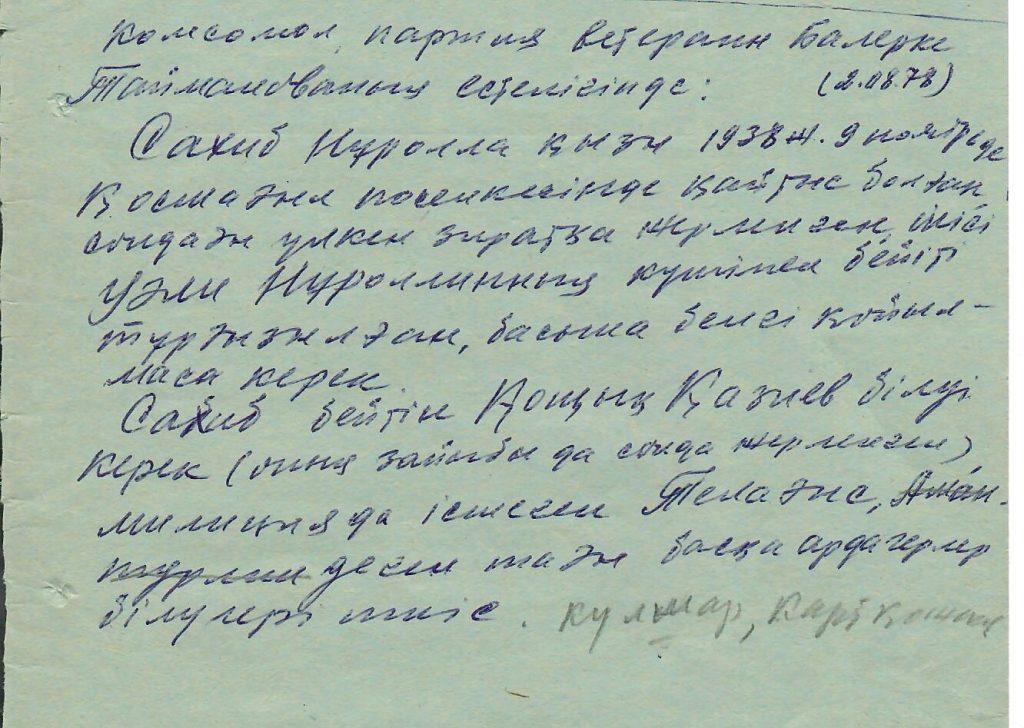 комсомол, партия ветераны Балерке
Тайманованың естелігінде: (2.08.78)
Сахиб Нұролла қызы 1938 ж. 9 ноябрьде
Қостағыл поселкесінде қайтыс болған,
сондағы үлкен зиратқа жерленген, інісі
Уәли Нұроллинның күшімен бейіті
тұрғызылған, басына белгі қойыл-
маса керек.
Сахиб бейітін Қощық Қазиев білуі
керек (оның зайыбы да сонда жерленген)
милицияда істеген Телағыс, Аман-
деген тағы басқа ардагерлер
білулері тиіс. Кулшар,